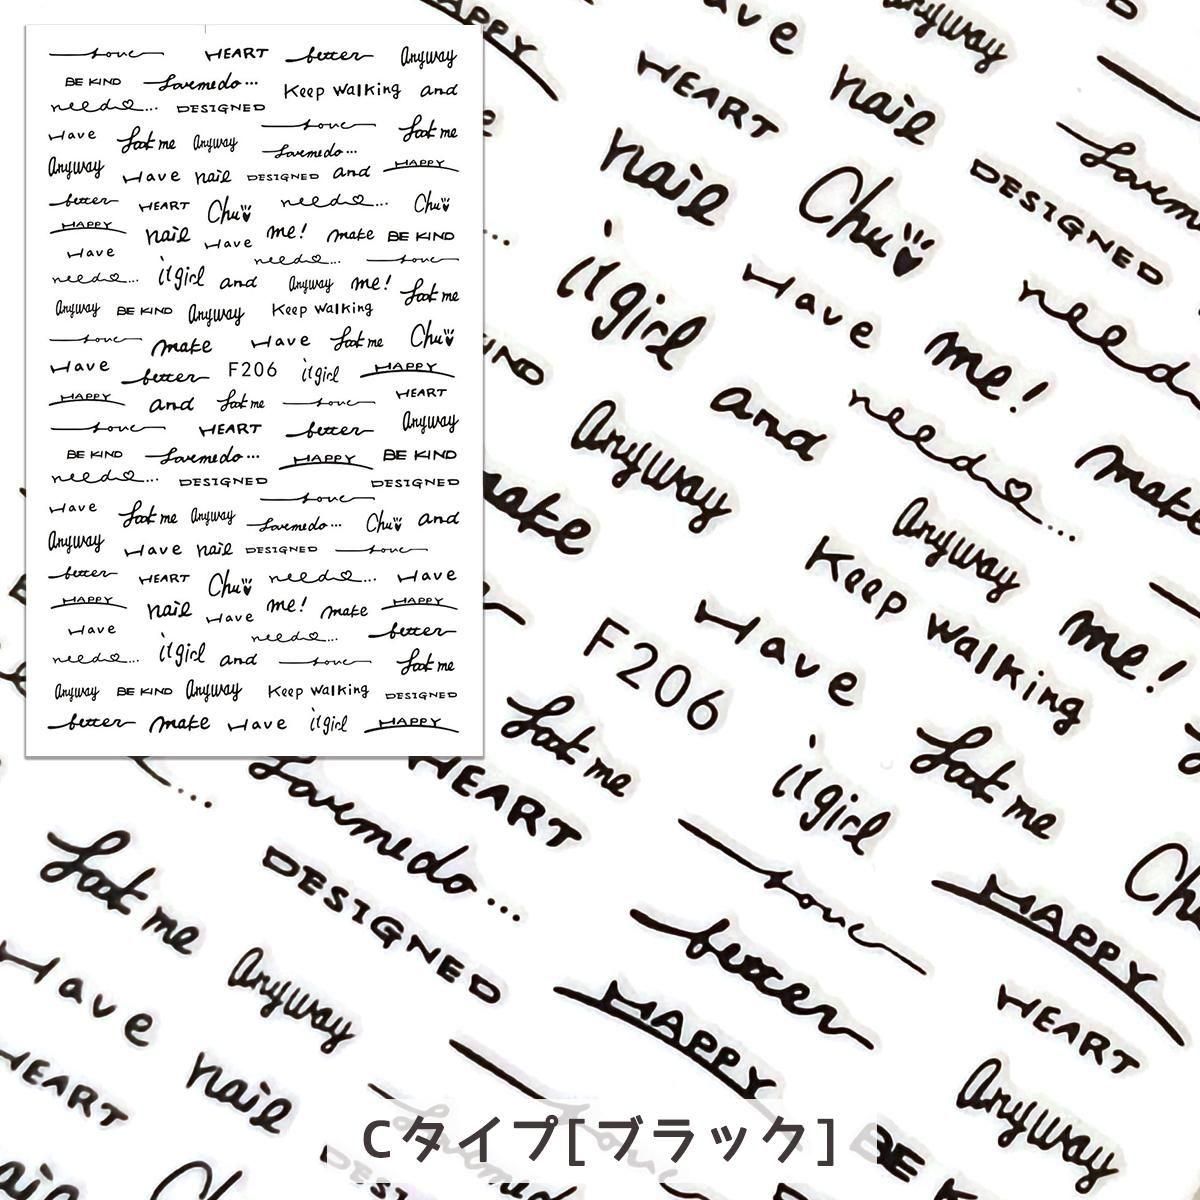 love HEART better Anyway
BE KIND Lovemedo...
Keep Walking and
need... DESIGNED
love
Have Look me Anyway Look me
Lovemedo...
Anyway Have nail DESIGNED and HAPPY
better HEART Chu need... Chu
HAPPY nail Have me! make BE KIND
Have need... love
need... it girl and Anyway me! Look me
Anyway BE KIND Anyway Keep Walking
love make Have Look me Chu
Have better F206 it girl HAPPY
HAPPY and Look me love HEART
love HEART better Anyway
BE KIND Lovemedo... HAPPY BE KIND
need... DESIGNED DESIGNED
love
Have Look me Anyway Lovemedo... Chu and
Anyway Have nail DESIGNED love
better HEART Chu need... Have
HAPPY nail Have me! make HAPPY
Have need... better
need... it girl and love Look me
Anyway BE KIND Anyway Keep Walking DESIGNED
better make Have it girl HAPPY
HAPPY
ave
Anyway
HEART
nail
nail
Chu
DESIGNED
it girl
Have
me!
need
and
need...
make
Anyway
Anyway
make
Keep Walking
Have
me!
F206
Look me
it girl
Look me
HEART
Lovemedo...
love
HAPPY
Look me
DESIGNED
better
Have
Anyway
HAPPY
HEART
HEART
nail
Anyway
BE
Cタイプ[ブラック]